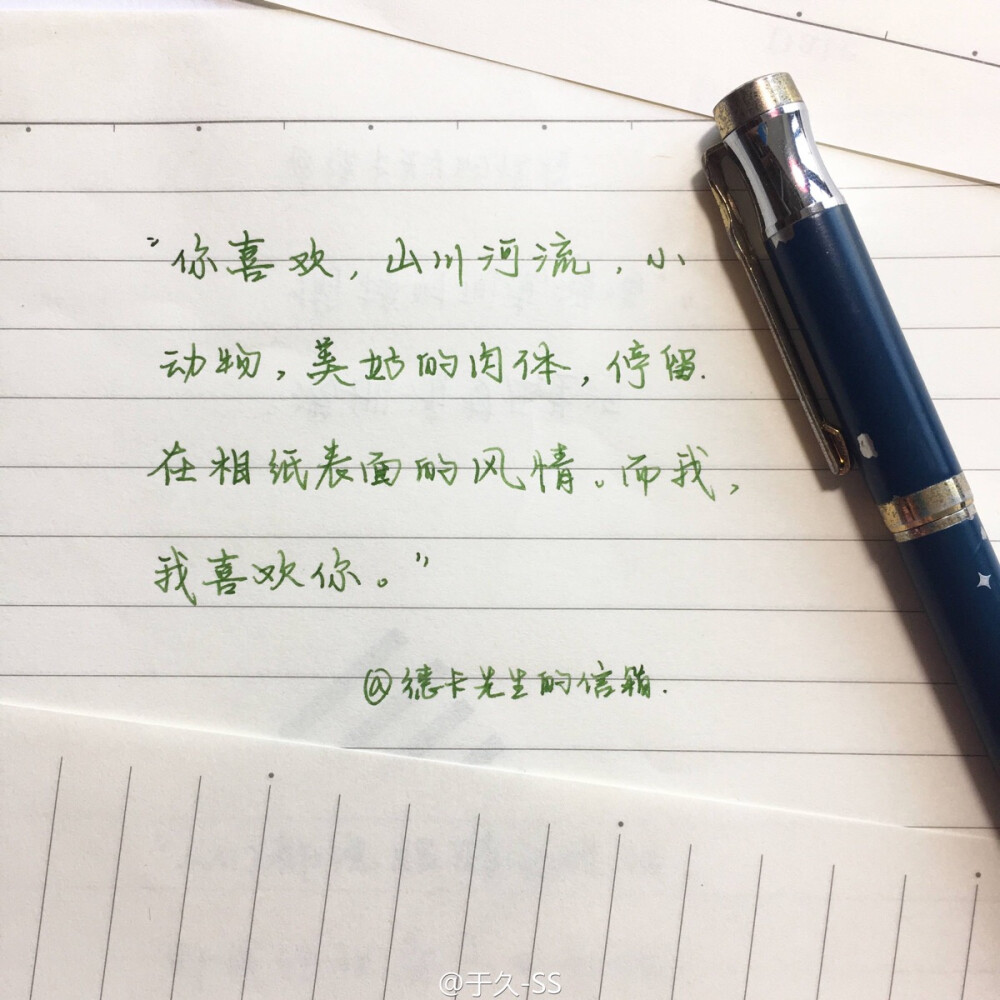 “你喜欢，山川河流，小
动物，美姑的肉体，停留
在相纸表面的风情。而我，
我喜欢你。”
@德卡先生的信箱.
@于久-SS